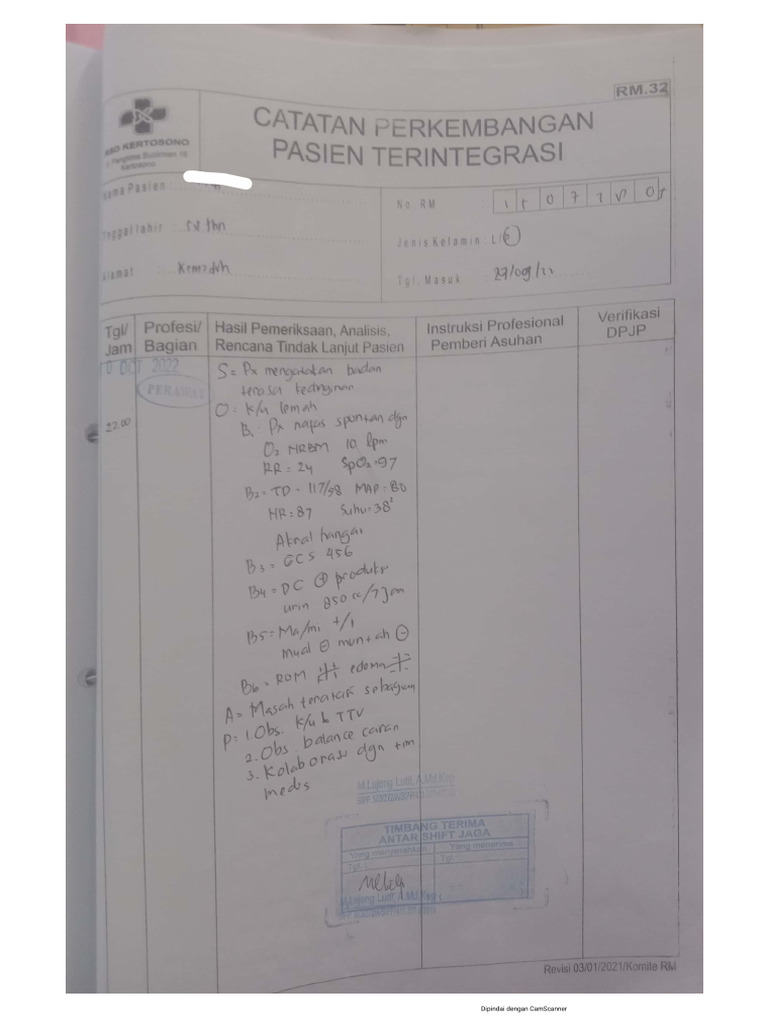 RM.32
CATATAN PERKEMBANGAN
PASIEN TERINTEGRASI
KERTOSONO
Kertosono
Nama Pasien :
No. RM :
Tanggal lahir : thn
Jenis Kelamin : L/P
Alamat :
Tgl. Masuk : 29/09/22
Tgl/ Jam
Profesi/ Bagian
Hasil Pemeriksaan, Analisis, Rencana Tindak Lanjut Pasien
Instruksi Profesional Pemberi Asuhan
Verifikasi DPJP
OCT 2022
PERAWAT
22.00
S = Px mengatakan badan
terasa kedinginan
O = K/u lemah
B1 : Px nafas spontan dgn
O2 NRBM 10 lpm
RR = 24 SpO2 = 97
B2 = TD = 117/58 MAP = 80
HR = 87 Suhu = 38²
Akral hangat
B3 = GCS 456
B4 = DC ⊕ produksi
urin 850 cc/7 Jam
B5 = Ma/mi +/+
Mual ⊖ muntah ⊖
B6 = ROM edema
A = Masalah teratasi sebagian
P = 1. Obs. K/u & TTV
2. Obs balance cairan
3. Kolaborasi dgn tim
medis
M.Lujeng Lutfi, A.Md.Kep
TIMBANG TERIMA
ANTAR SHIFT JAGA
Yang menyerahkan
Yang menerima
Tgl.
Tgl.
M.Lujeng Lutfi, A.Md.Kep
Revisi 03/01/2021/Komite RM
Dipindai dengan CamScanner